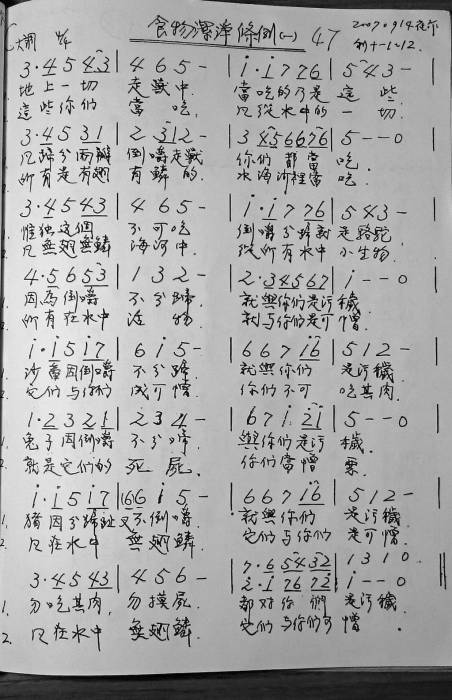 食物潔淨條例(一) 47 2007.0914夜.
大調 4/4 利十一1~12.
3·4 5 43 | 4 6 5 - | i·i 7 76 | 5 4 3 - |
1. 地上一切 走獸中. 當吃的乃是 這些
2. 這些你們 當吃, 凡從水中的 一切.
3·4 5 31 | 2 312 - | 3 456676 | 5 - - 0
1. 凡蹄分兩瓣 倒嚼走獸 你們都當 吃.
2. 所有是有翅 有鱗的. 水海河裡當 吃.
3·4 5 43 | 4 6 5 - | i·i 7 76 | 5 4 3 -
1. 惟獨這個 不可吃 倒嚼分蹄就 是駱駝
2. 凡無翅無鱗 海河中. 從所有水中 小生物.
4·5 6 53 | 1 3 2 - | 2·34567 | i - - 0
1. 因為倒嚼 不分蹄. 就與你們是污 穢.
2. 所有在水中 活物. 就与你們是可 憎.
i·i 5 i7 | 6 i 5 - | 6 6 7 i6 | 5 1 2 -
1. 沙番因倒嚼 不分蹄 就與你們 是污穢
2. 它們与你們 成可憎. 你們不可 吃其肉.
1·2 3 21 | 2 3 4 - | 6 7 i 2i | 5 - - 0
1. 兔子因倒嚼 不分蹄. 與你們是污 穢.
2. 就是它們的 死屍. 你們當憎 惡.
i·i 5 i7 | 66 i 5 - | 6 6 7 i6 | 5 1 2 -
1. 豬因分蹄趾 又不倒嚼. 就與你們 是污穢.
2. 凡在水中 無翅鱗. 它們与你們 是可憎.
3·4 5 43 | 4 5 6 - | 7·6 54 32 | 1 3 1 0
2·i 76 72 | i - - 0
1. 勿吃其肉, 勿摸屍. 都对你們 是污穢.
2. 凡在水中 無翅鱗. 它們与你們可 憎.